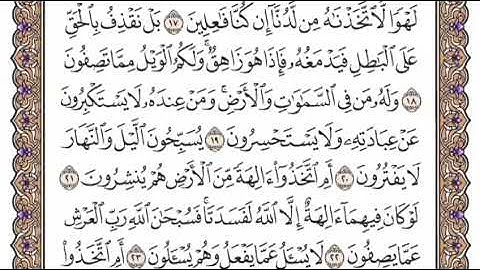 لَهْوًا لَّاتَّخَذْنَاهُ مِن لَّدُنَّا إِن كُنَّا فَاعِلِينَ ١٧ بَلْ نَقْذِفُ بِالْحَقِّ
عَلَى الْبَاطِلِ فَيَدْمَغُهُ فَإِذَا هُوَ زَاهِقٌ ۚ وَلَكُمُ الْوَيْلُ مِمَّا تَصِفُونَ
١٨ وَلَهُ مَن فِي السَّمَاوَاتِ وَالْأَرْضِ ۚ وَمَنْ عِندَهُ لَا يَسْتَكْبِرُونَ
عَنْ عِبَادَتِهِ وَلَا يَسْتَحْسِرُونَ ١٩ يُسَبِّحُونَ اللَّيْلَ وَالنَّهَارَ
لَا يَفْتُرُونَ ٢٠ أَمِ اتَّخَذُوا آلِهَةً مِّنَ الْأَرْضِ هُمْ يُنشِرُونَ ٢١
لَوْ كَانَ فِيهِمَا آلِهَةٌ إِلَّا اللَّهُ لَفَسَدَتَا ۚ فَسُبْحَانَ اللَّهِ رَبِّ الْعَرْشِ
عَمَّا يَصِفُونَ ٢٢ لَا يُسْأَلُ عَمَّا يَفْعَلُ وَهُمْ يُسْأَلُونَ ٢٣ أَمِ اتَّخَذُوا